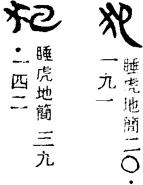 犯
睡虎地簡二〇·
一九一
犯
睡虎地簡三九
·一四二